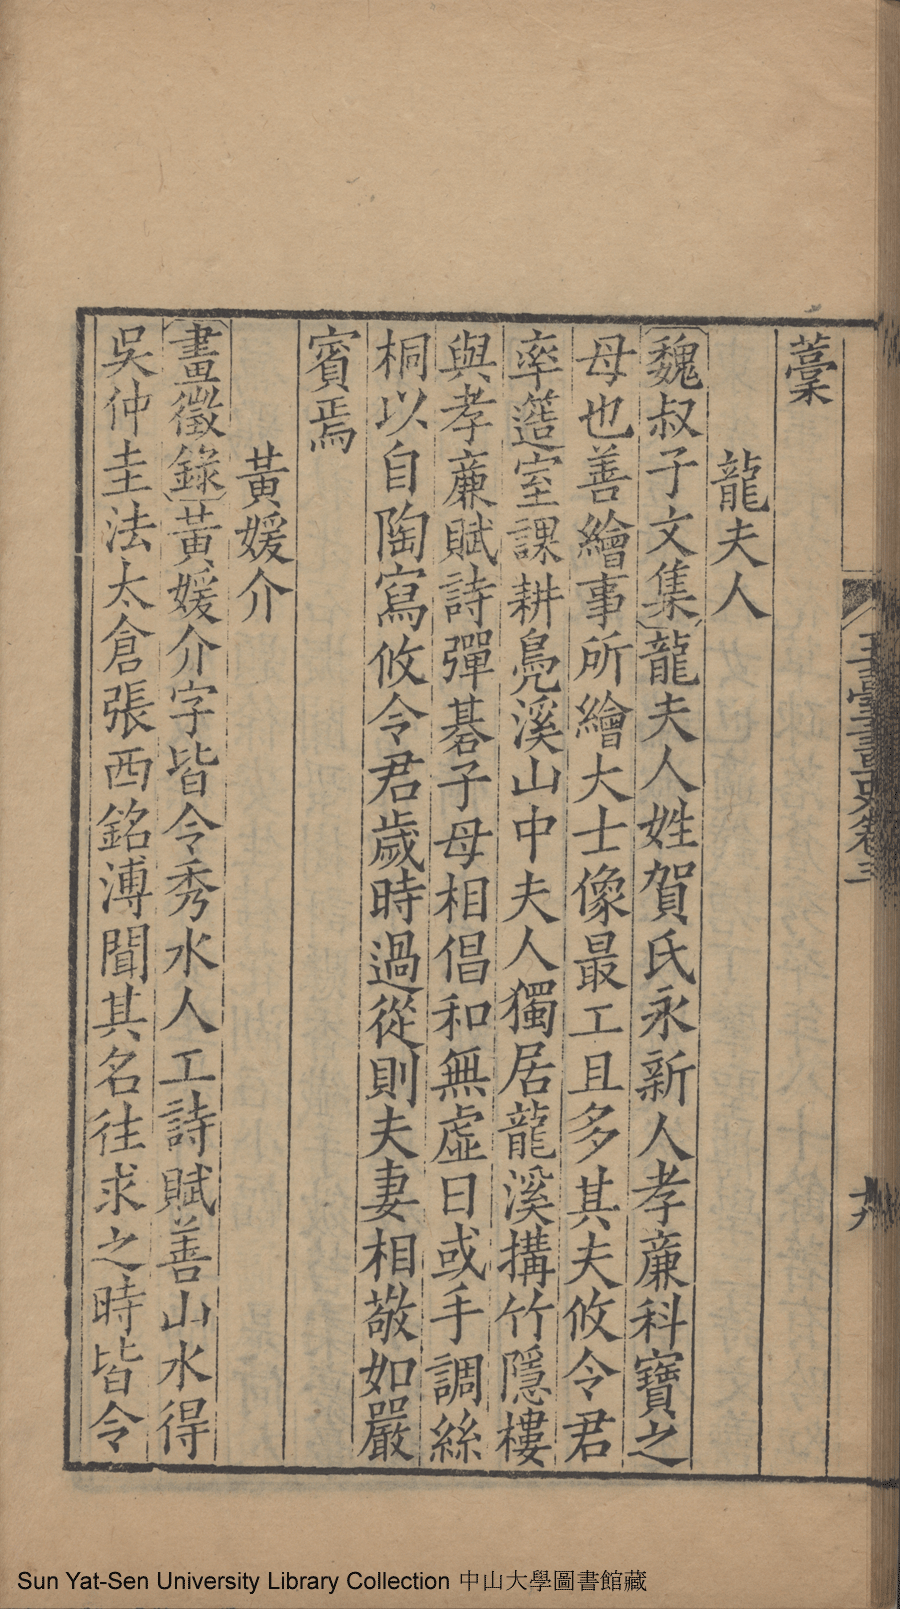 藁
龍夫人
魏叔子文集龍夫人姓賀氏永新人孝亷科寶之
母也善繪事所繪大士像最工且多其夫攸令君
率簉室課耕鳧溪山中夫人獨居龍溪搆竹隱樓
與孝亷賦詩彈碁子母相倡和無虛日或手調絲
桐以自陶寫攸令君歲時過從則夫妻相敬如嚴
賓焉
黃媛介
畫徵錄黃媛介字皆令秀水人工詩賦善山水得
吳仲圭法太倉張西銘溥聞其名往求之時皆令
玉臺畫史卷三
Sun Yat-Sen University Library Collection 中山大學圖書館藏